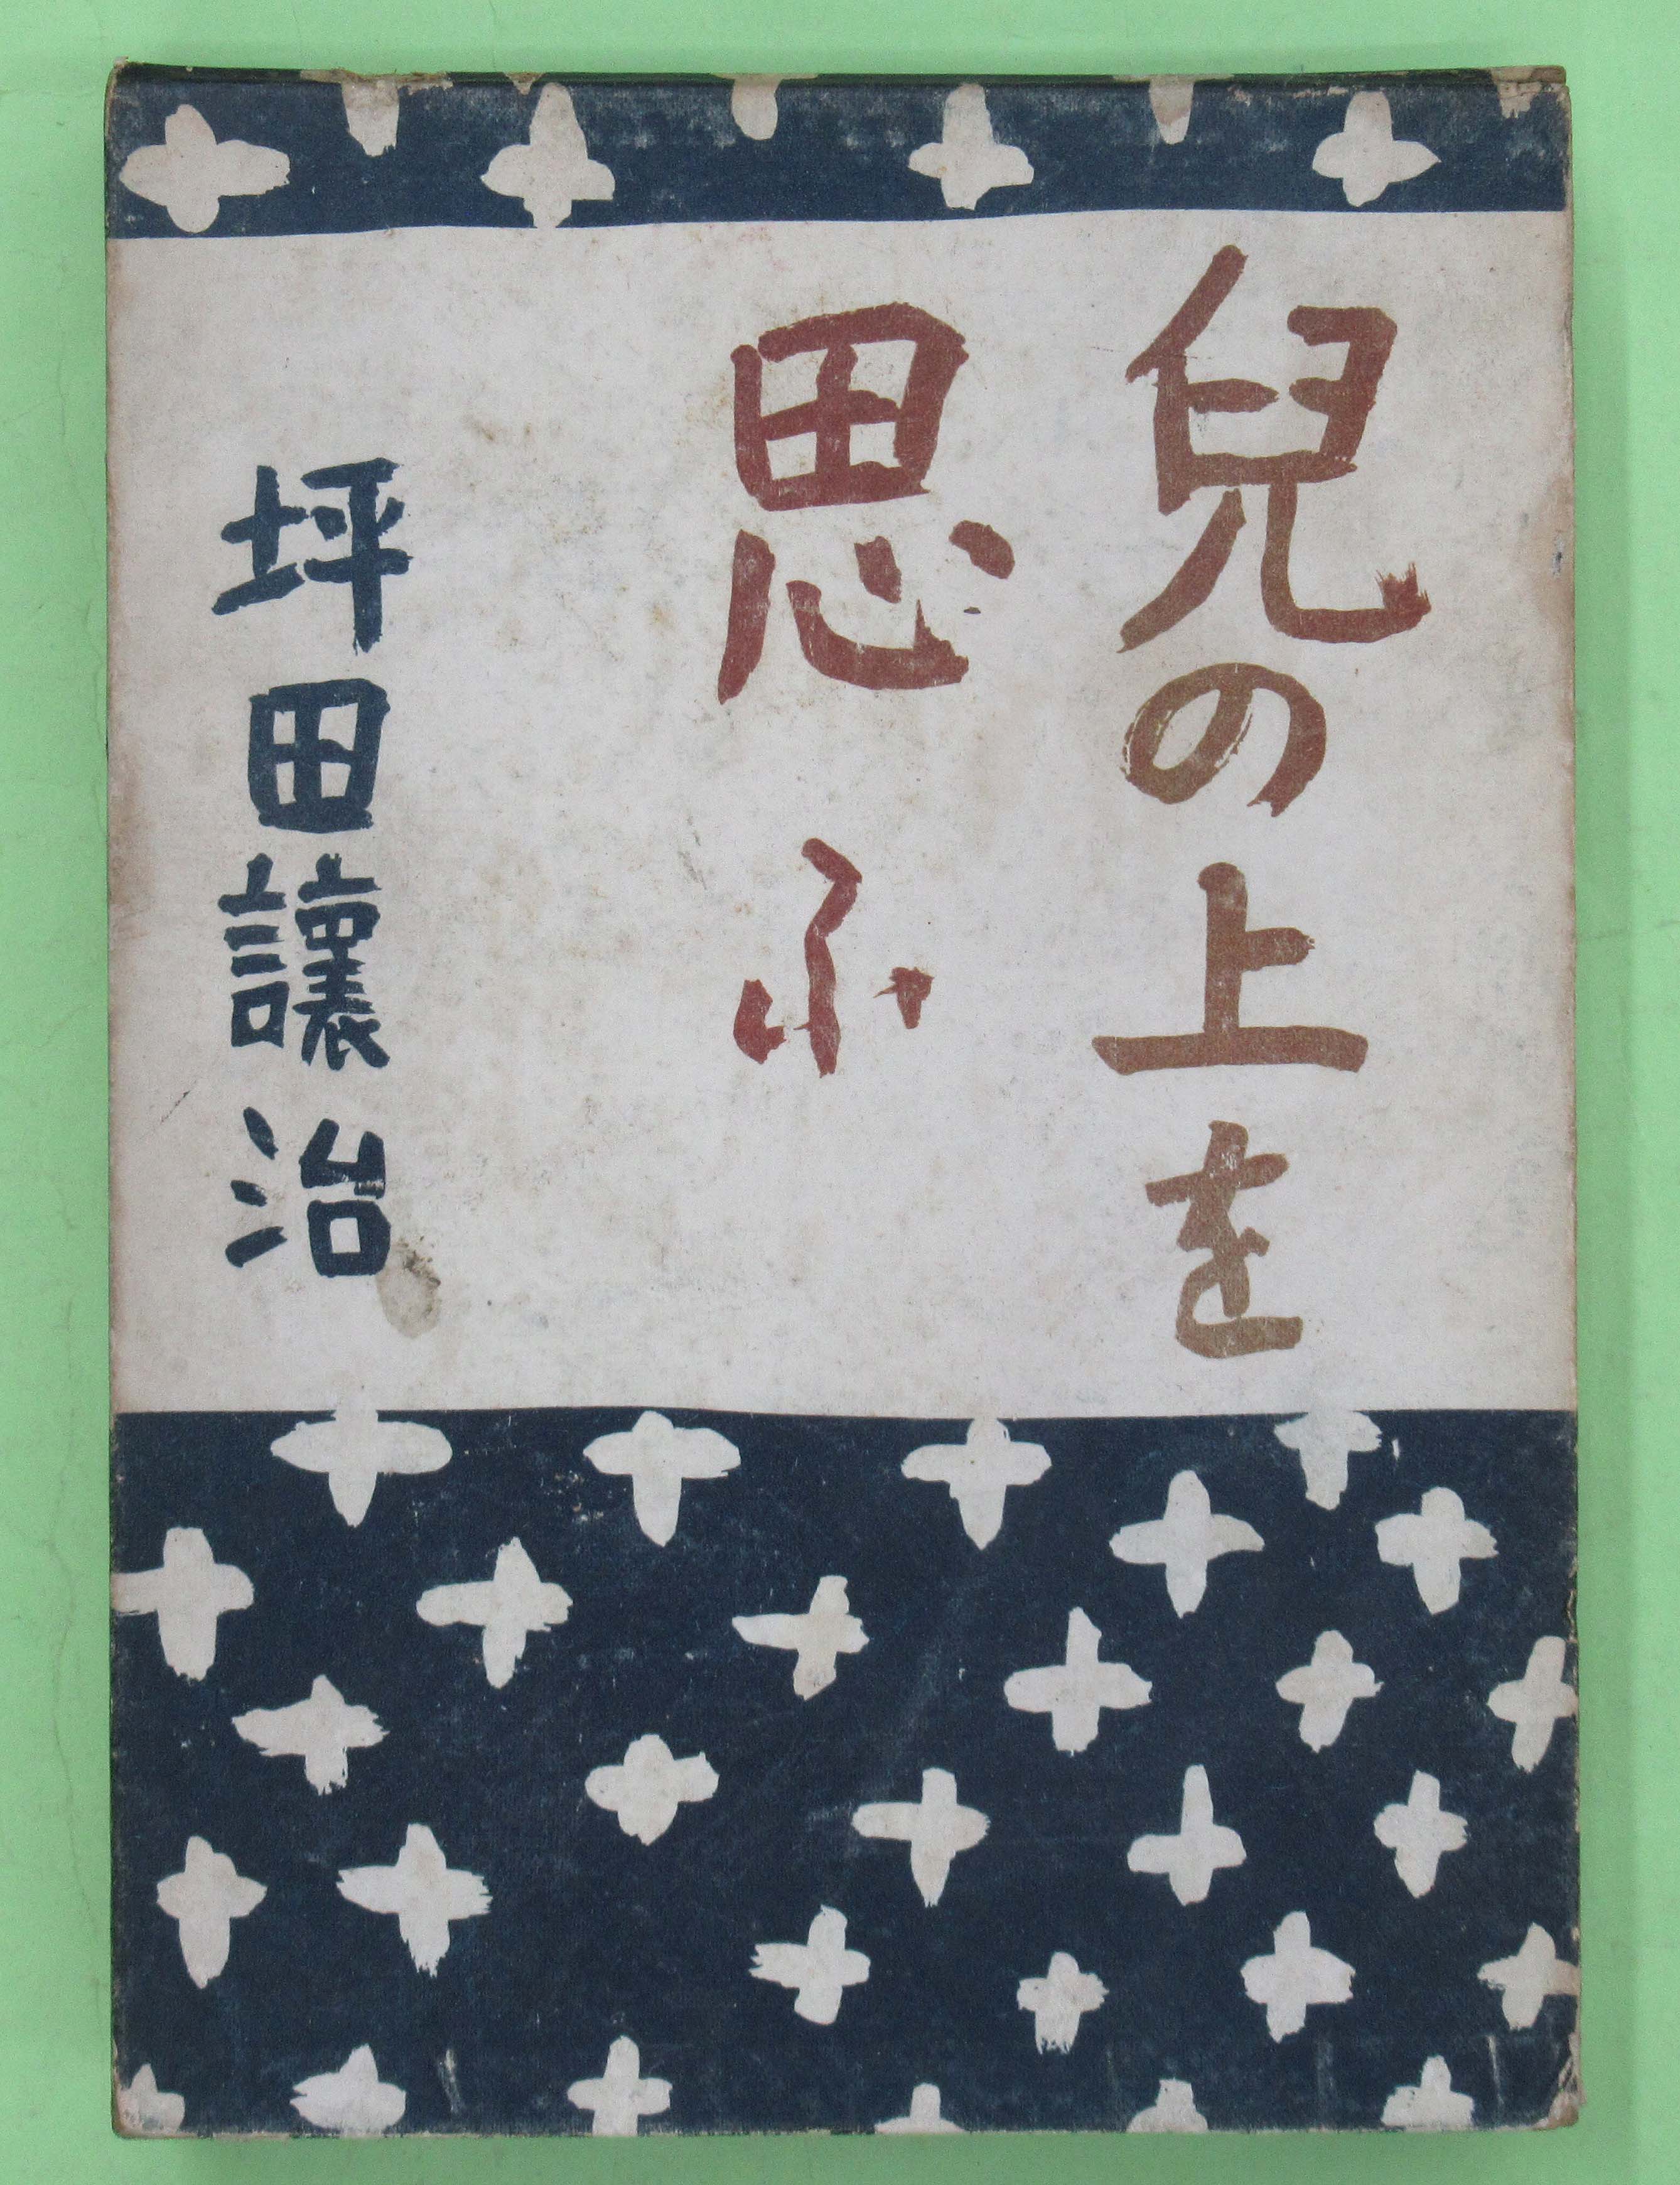 兒の上を
思ふ
坪田讓治